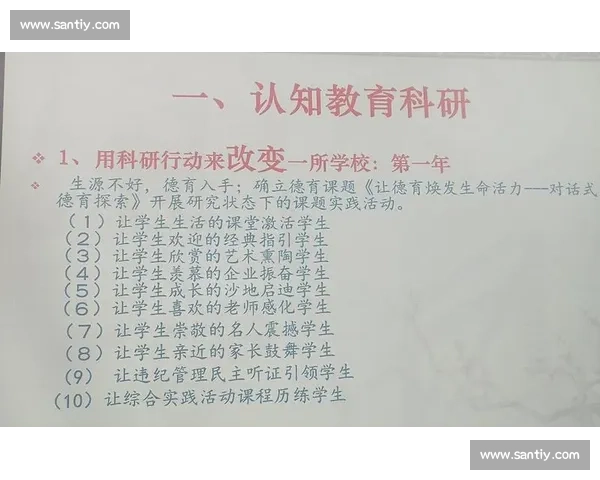 www.santiy.com
一、认知教育科研
1、用科研行动来改变一所学校：第一年
生源不好，德育入手；确立德育课题《让德育焕发生命活力——对话式
德育探索》开展研究状态下的课题实践活动。
（1）让学生生活的课堂激活学生
（2）让学生欢迎的经典指引学生
（3）让学生欣赏的艺术熏陶学生
（4）让学生羡慕的企业振奋学生
（5）让学生成长的沙地启迪学生
（6）让学生喜欢的老师感化学生
（7）让学生崇敬的名人震撼学生
（8）让学生亲近的家长鼓舞学生
（9）让违纪管理民主听证引领学生
（10）让综合实践活动课程历练学生
www.santiy.com